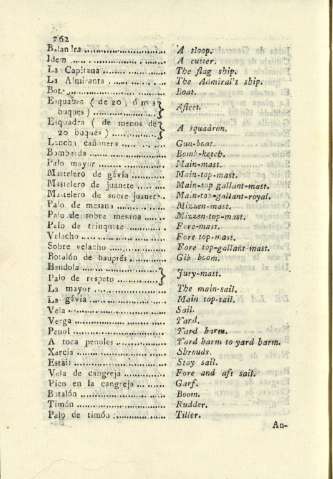 262
Balandra ........................ A sloop.
Idem ........................ A cutter.
La Capitana ........................ The flag ship.
La Almiranta ........................ The Admiral's ship.
Bote ........................ Boat.
Esquadra ( de 20, ó mas
buques ) ........................ A fleet.
Esquadra ( de menos de
20 buques ) ........................ A squadron.
Lancha cañonera ........................ Gun-boat.
Bombarda ........................ Bomb-ketch.
Palo mayor ........................ Main-mast.
Mastelero de gávia ........................ Main-top-mast.
Mastelero de juanete ........................ Main-top gallant-mast.
Mastelero de sobre juanete. Main-top-gallant-royal.
Palo de mesana ........................ Mizzen-mast.
Palo de sobre mesana ........................ Mizzen-top-mast.
Palo de trinquete ........................ Fore-mast.
Velacho ........................ Fore top-mast.
Sobre velacho ........................ Fore top-gallant mast.
Botalón de bauprés ........................ Gib boom.
Bandola ........................
Palo de respeto ........................ Jury-mast.
La mayor ........................ The main-sail.
La gávia ........................ Main top-sail.
Vela ........................ Sail.
Verga ........................ Yard.
Penol ........................ Yard harm.
A toca penoles ........................ Yard harm to yard harm.
Xarcia ........................ Shrouds.
Estáil ........................ Stay sail.
Vela de cangreja ........................ Fore and aft sail.
Pico en la cangreja ........................ Garf.
Botalón ........................ Boom.
Timón ........................ Rudder.
Palo de timón ........................ Tiller.
An-